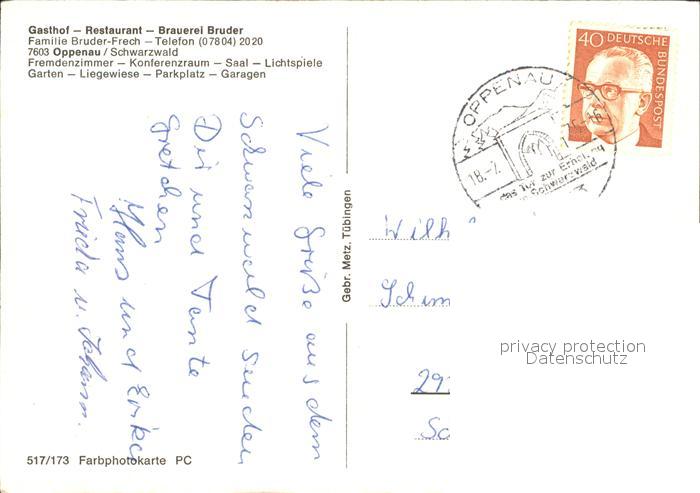 Gasthof – Restaurant – Brauerei Bruder
Familie Bruder-Frech – Telefon (07804) 2020
7603 Oppenau / Schwarzwald
Fremdenzimmer – Konferenzraum – Saal – Lichtspiele
Garten – Liegewiese – Parkplatz – Garagen
Viele Grüße aus dem
Schwarzwald senden
Dir und Tante
Gretchen
Hans und Erika
Frieda u. Johann.
517/173 Farbphotokarte PC
Gebr. Metz, Tübingen
40 DEUTSCHE
BUNDESPOST
OPPENAU
18.-7.
das Tor zur Erholung
Schwarzwald
Wilh
Schm
29
Sc
privacy protection
Datenschutz